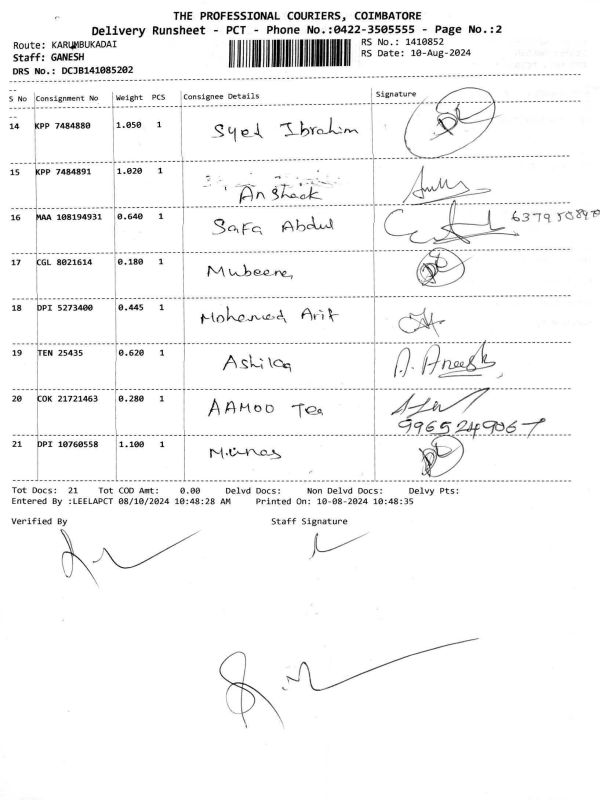 THE PROFESSIONAL COURIERS, COIMBATORE
Delivery Runsheet - PCT - Phone No.:0422-3505555 - Page No.:2
Route: KARUMBUKADAI RS No.: 1410852
Staff: GANESH RS Date: 10-Aug-2024
DRS No.: DCJB141085202
S No Consignment No Weight PCS Consignee Details Signature
14 KPP 7484880 1.050 1 Syed Ibrahim
15 KPP 7484891 1.020 1 Ansheek
16 MAA 108194931 0.640 1 Safa Abdul
17 CGL 8021614 0.180 1 Mubeena
18 DPI 5273400 0.445 1 Mohamed Arif
19 TEN 25435 0.620 1 Ashika A. Aneesh
20 COK 21721463 0.280 1 AAMOO Tea
9965249067
21 DPI 10760558 1.100 1 Munas
Tot Docs: 21 Tot COD Amt: 0.00 Delvd Docs: Non Delvd Docs: Delvy Pts:
Entered By :LEELAPCT 08/10/2024 10:48:28 AM Printed On: 10-08-2024 10:48:35
Verified By Staff Signature